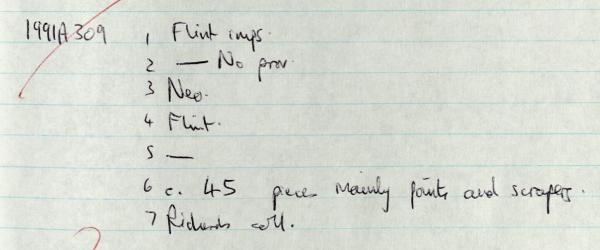 1991A309 1 Flint imps.
2 — No prov.
3 Neo.
4 Flint.
5 —
6 c. 45 pieces mainly points and scrapers.
7 Richards coll.